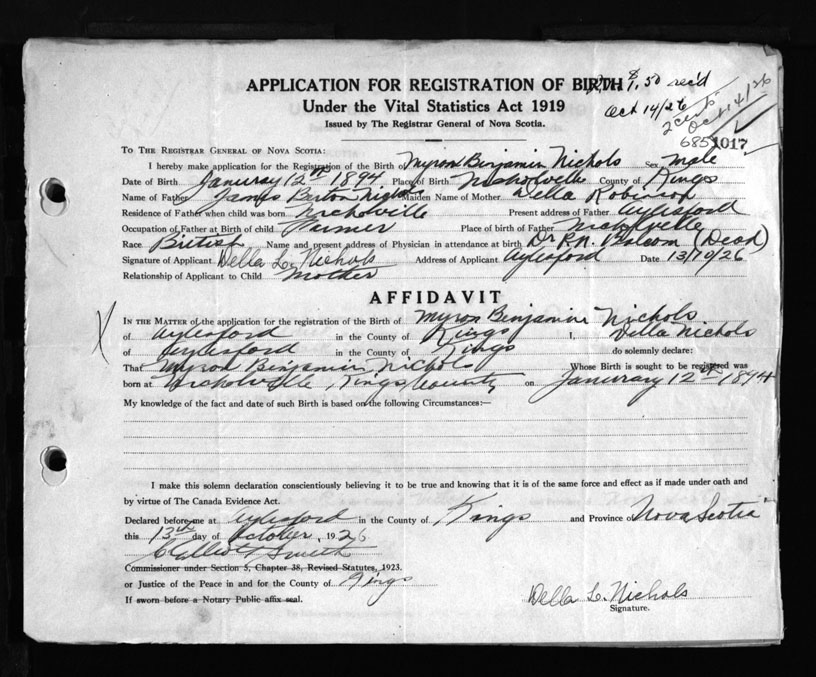 APPLICATION FOR REGISTRATION OF BIRTH $1.50 rec'd
Under the Vital Statistics Act 1919 Oct 14/26
Issued by The Registrar General of Nova Scotia. Oct 14/26
685 1017
TO THE REGISTRAR GENERAL OF NOVA SCOTIA:
I hereby make application for the Registration of the Birth of Myron Benjamin Nichols Sex male
Date of Birth Januray 12th 1894 Place of Birth Nicholville County of Kings
Name of Father James Nichols Maiden Name of Mother Della Robinson
Residence of Father when child was born Nicholville Present address of Father Aylesford
Occupation of Father at Birth of child Farmer Place of birth of Father Nicholville
Race British Name and present address of Physician in attendance at birth Dr (Dead)
Signature of Applicant Della L. Nichols Address of Applicant Aylesford Date 13/10/26
Relationship of Applicant to Child Mother
AFFIDAVIT
IN THE MATTER of the application for the registration of the Birth of Myron Benjamin Nichols
of Aylesford in the County of Kings I, Della Nichols
of Aylesford in the County of Kings do solemnly declare:
That Myron Benjamin Nichols Whose Birth is sought to be registered was
born at Nicholville, Kings County on Januray 12th 1894
My knowledge of the fact and date of such Birth is based on the following Circumstances:—
I make this solemn declaration conscientiously believing it to be true and knowing that it is of the same force and effect as if made under oath and
by virtue of The Canada Evidence Act.
Declared before me at Aylesford in the County of Kings and Province of Nova Scotia
this 13th day of October, 1926
Smith
Commissioner under Section 5, Chapter 38, Revised Statutes, 1923.
or Justice of the Peace in and for the County of Kings
If sworn before a Notary Public affix seal.
Della L. Nichols
Signature.